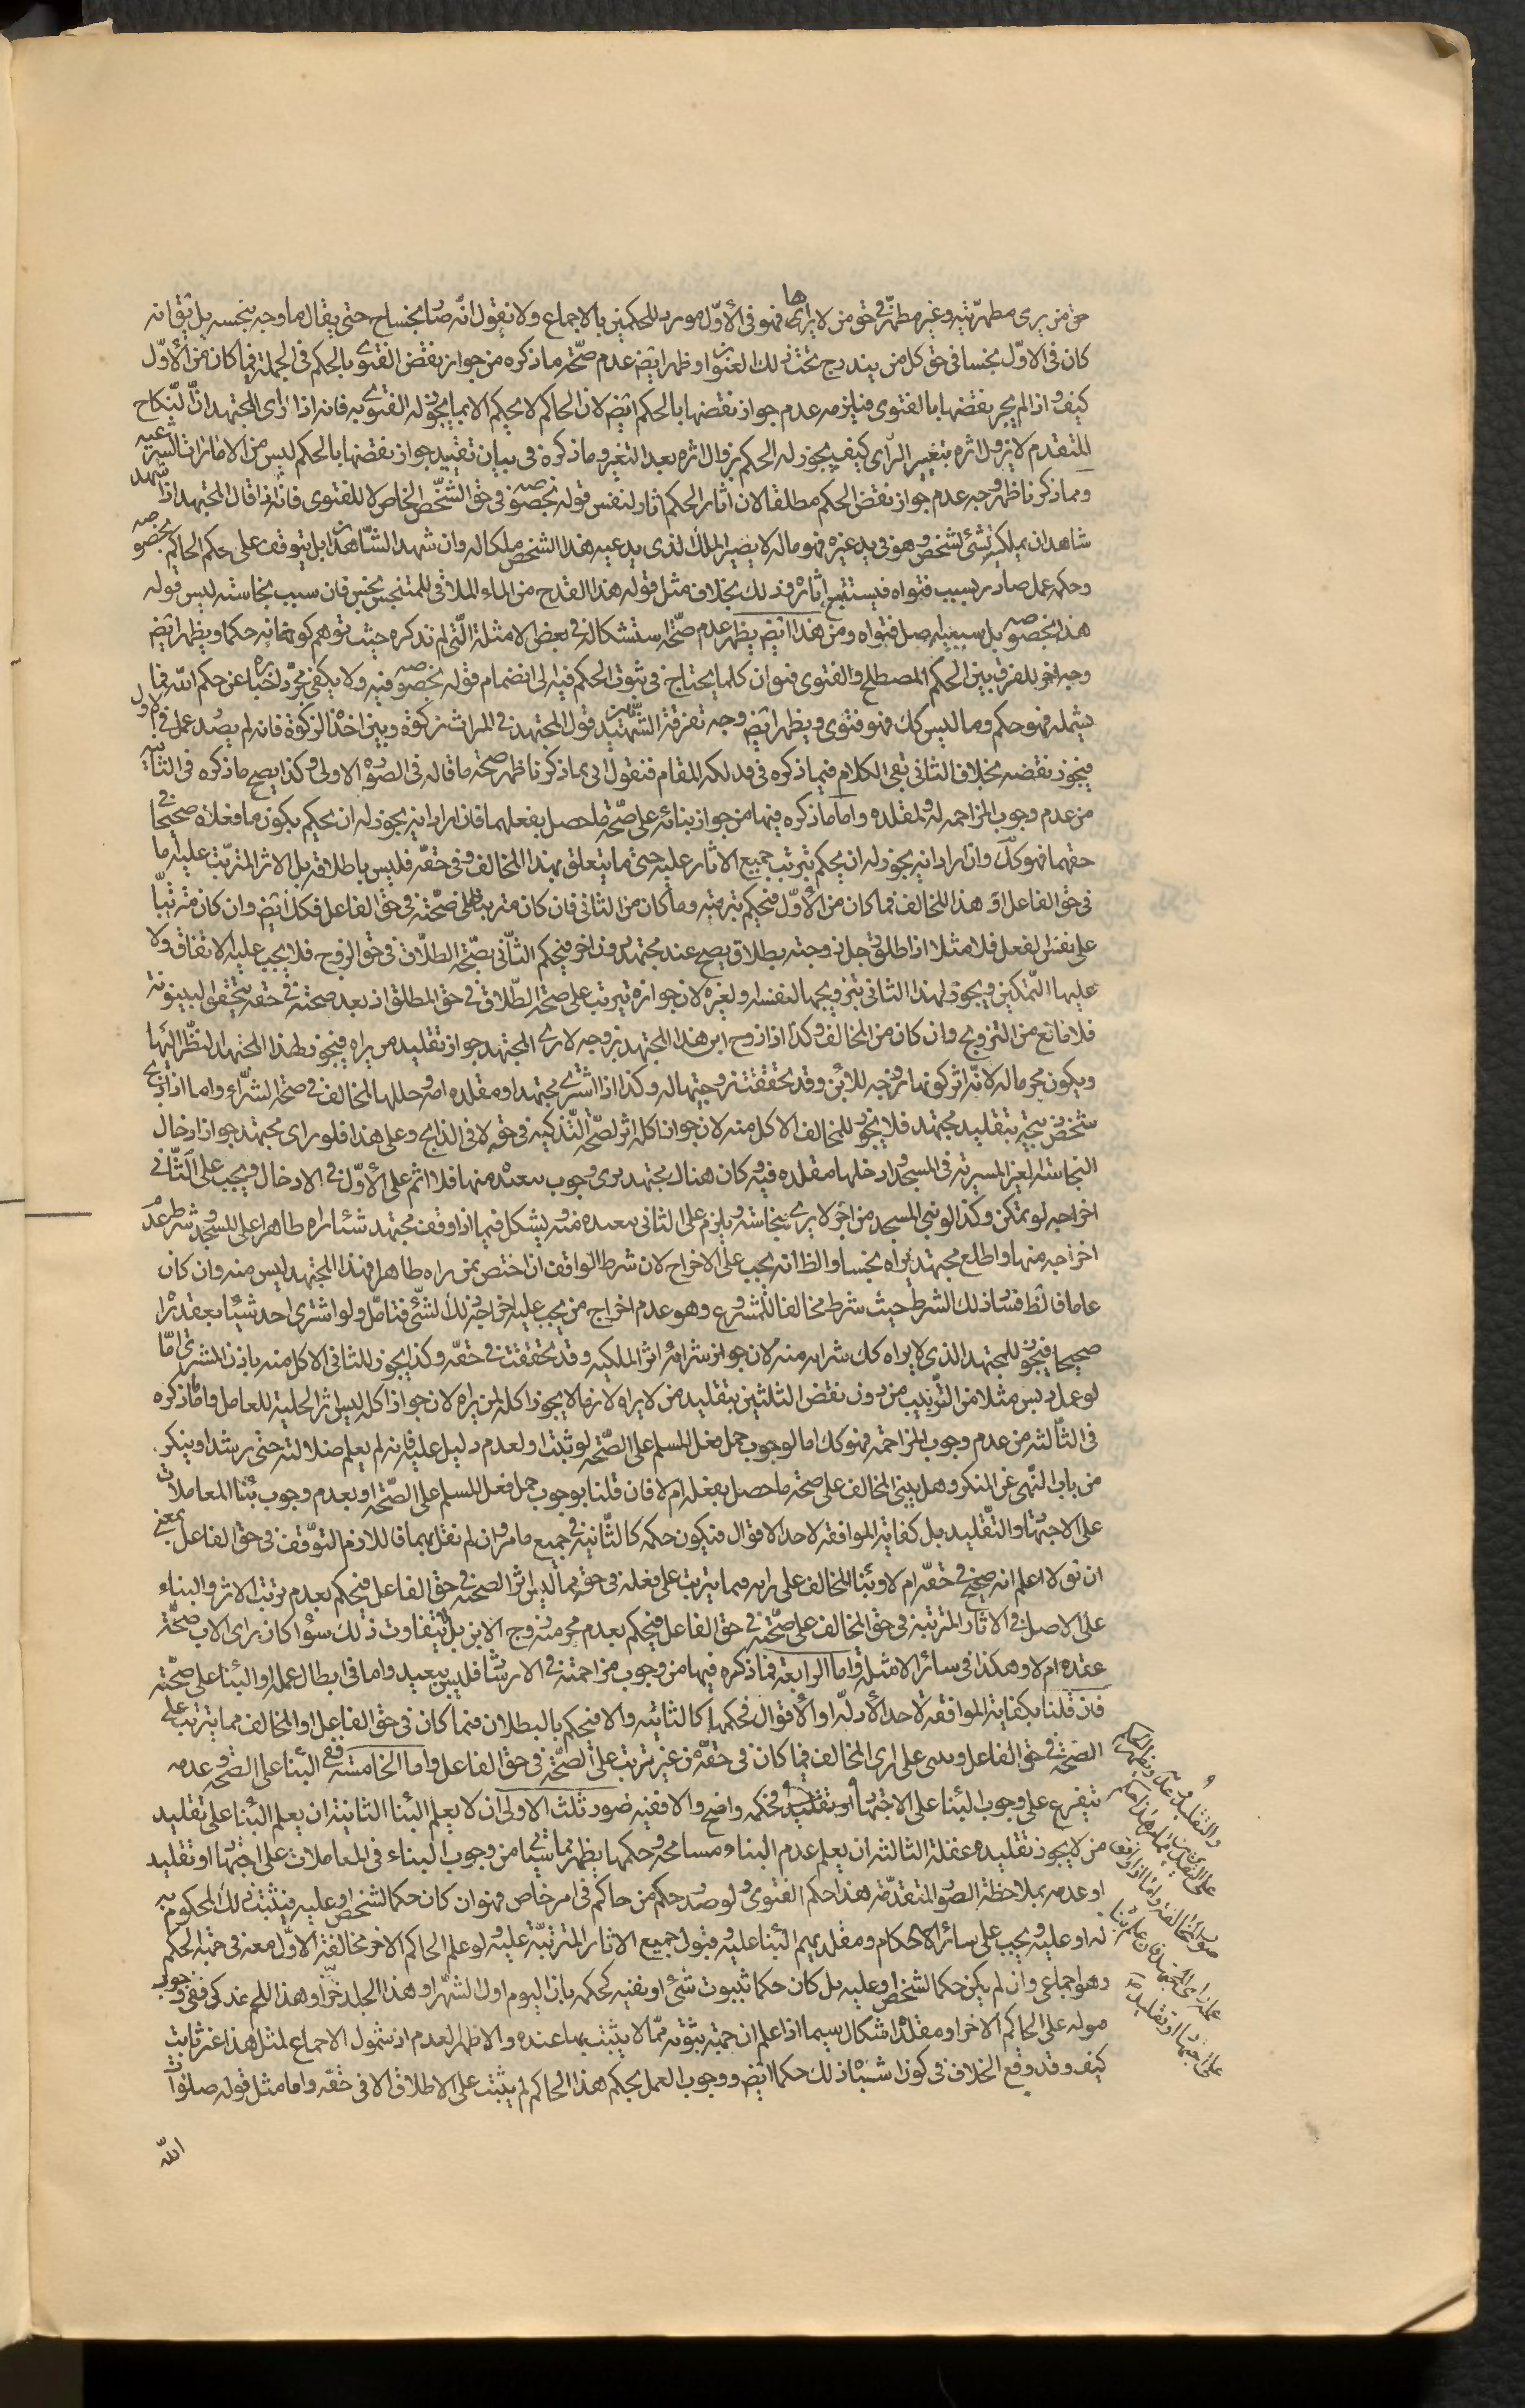 حق من يرى مطهريته وغير مطهر في حق من لا يراها فهو في الأوّل مورد للحكمين بالاجماع ولا نقول انّه صار نجسا حتى يقال ما وجه تنجسه بل نقول انه
كان في الاوّل نجسا في حق كل من يندرج تحت ذلك العنوان وظهر ايضا عدم صحّة ما ذكره من جواز نقض الفتوى بالحكم في الجملة فيما كان من الأوّل
كيف واذا لم يجز نقضها بالفتوى فيلزمه عدم جواز نقضها بالحكم ايضا لان الحاكم لا يحكم الا بما يجوز له الفتوى به فانه اذا رأى المجتهد انّ النّكاح
المتقدم لا يزول اثره بتغيير الرّأى كيف يجوز له الحكم بزوال اثره بعد التغير وما ذكره في بيان تقييد جواز نقضها بالحكم ليس من الامارات الشرعيه
ومما ذكرنا ظهر وجه عدم جواز نقض الحكم مطلقا لان اثار الحكم اثار لنفس قوله بخصوصه في حق الشّخص الخاص لا للفتوى فانّه اذا قال المجتهد اذا شهد
شاهدان بملكية شئ لشخص وهو في يد غيره فهو ماله لا يصير الملك الذى يدعيه هذا الشخص ملكا له وان شهد الشّاهدان بل يتوقف على حكم الحاكم بخصوصه
وحكمه عمل صادر بسبب فتواه فيستتبع اثاره وذلك بخلاف مثل قوله هذا القدح من الماء الملاقى للمتنجس نجس فان سبب نجاسته ليس قوله
هذا بخصوصه بل سببيته اصل فتواه ومن هذا ايضا يظهر عدم صحّة استشكاله في بعض الامثلة الّتى لم تذكره حيث توهم كونها حكما ويظهر ايضا
وجه اخر للفرق بين الحكم المصطلح والفتوى فهو ان كلما يحتاج في ثبوت الحكم فيه الى انضمام قوله بخصوصه فيه ولا يكفى مجرّد اخباره عن حكم اللّه فيما
يشمله فهو حكم وما ليس كك فهو فتوى ويظهر ايضا وجه تفرقة الشهيد بين قول المجتهد في الميراث زكوة وبين اخذ الزكوة فانه لم يصدر عمل في الاول
فيجوز نقضه بخلاف الثانى بقى الكلام فيما ذكره في فذلكة المقام فنقول انى بما ذكرنا ظهر صحة ما قاله في الصورة الاولى وكذا يصح ما ذكره في الثانية
من عدم وجوب المزاحمه له ولمقلده واما ما ذكره فيها من جواز بنائه على صحّة ما حصل بفعلهما فان اراد انه يجوز له ان يحكم بكون ما فعلاه صحيحا في
حقهما فهو كك وان اراد انه يجوز له ان يحكم بترتب جميع الاثار عليه حتى ما يتعلق بهذا المخالف وفي حقّه فليس باطلاقه بل الاثر المترتب عليه اما
في حق الفاعل او هذا المخالف فما كان من الأوّل فيحكم بترتبه وما كان من الثانى فان كان مترتبا على صحّته في حق الفاعل فكك ايضا وان كان مترتّبا
على نفس الفعل فلا مثلا اذا طلق رجل زوجته بطلاق يصح عند مجتهد دون اخر فيحكم الثّانى بصحّة الطلّاق في حق الزوج فلا يجب عليه الانفاق ولا
عليها التمكين ويجوز لهذا الثانى تزويجها لنفسه ولغيره لان جوازه يترتب على صحة الطّلاق في حق المطلق اذ بعد صحته في حقه يتحقق البينونة
فلا مانع من التزويج وان كان من المخالف وكذا اذا زوج ابن هذا المجتهد بزوجه لا يرى المجتهد جواز تقليد من يراه فيجوز لهذا المجتهد النظر اليها
ويكون محرما له لانّه اثر كونها زوجه للابن وقد تحققت زوجيتها له وكذا اذا اشترى مجتهد او مقلده امة وحللها المخالف في صحة الشّراء واما اذا ذبح
شخص ذبيحته بتقليد مجتهد فلا يجوز للمخالف الاكل منه لان جواز اكله اثر لصحّة التّذكيه في حقه لا في الذابح وعلى هذا فلو راى مجتهد جواز ادخال
النجاسة الغير المسرية في المسجد وادخلها مقلده فيه وكان هناك مجتهد يرى وجوب تبعيده منها فلا اثم على الأوّل في الادخال ويجب على الثّانى
اخراجه لو تمكن وكذا لو بنى المسجد من اجر لا يرى نجاسته ويلزم على الثانى تبعيده منه ويشكل فيما اذا وقف مجتهد شئا راه طاهرا على المسجد وشرط عدم
اخراجه منها واطلع مجتهد يراه نجسا والظاهر انه يجب على الاخراج لان شرط الواقف ان اختص بمن راه طاهرا فهذا المجتهد ليس منه وان كان
عاما فالظ فساد ذلك الشرط حيث شرط مخالفا للمشروع وهو عدم اخراج من يجب عليه اخراجه ذلك الشئ فتامّل ولو اشترى احد شيئا بعقد راه
صحيحا فيجوز للمجتهد الذى لا يراه كك شراءه منه لان جواز شرائه اثر الملكيه وقد تحققت في حقّه وكذا يجوز للثانى الاكل منه باذن المشترى امّا
لو عمل دبس مثلا من الزّبيب من دون نقض الثلثين بتقليد من لا يراه لازما لا يجوز اكله لمن يراه لان جواز اكله ليس اثر الحلية للعامل واما ما ذكره
في الثالثه من عدم وجوب المزاحمة فهو كك اما لوجوب حمل فعل المسلم على الصّحّة لو ثبت او لعدم دليل عليه فانه لم يعلم ضلالته حتى يرشد او ينكر
من باب النّهى عن المنكر وهل يبنى المخالف على صحة ما حصل بفعله ام لا فان قلنا بوجوب حمل فعل المسلم على الصّحّة او بعدم وجوب بناء المعاملات
على الاجتهاد والتّقليد بل كفاية الموافقه لاحد الاقوال فيكون حكمه كالثّانية في جميع ما مر وان لم نقل بهما فاللازم التوّقف في حق الفاعل بمعنى
ان نقول لا اعلم انه صحيح في حقّه ام لا وبناء المخالف على رايه فيما يترتب على فعله في حقه مما ليس اثر الصحة في حق الفاعل فيحكم بعدم ترتب الاثر والبناء
على الاصل في الاثار المترتبة في حق المخالف على صحّته في حق الفاعل فيحكم بعدم محرميه زوج الابن بل يتفاوت ذلك سواء كان راى الاب صحّة
عقده ام لا وهكذا في سائر الامثلة واما الرابعة فما ذكره فيها من وجوب مزاحمته في الارشاد فليس ببعيد واما في ابطال عمله او البناء على صحّته
فان قلنا بكفاية الموافقة لاحد الأدلّه او الأقوال فحكمها كالثانيه والا فيحكم بالبطلان فيما كان في حق الفاعل او المخالف مما يترتب على
الصّحة في حق الفاعل ويبنى على راى المخالف فيما كان في حقّه من غير ترتب على الصّحّة في حق الفاعل واما الخامسة ففى البناء على الصّحة وعدمه
يتفرع على وجوب البناء على الاجتهاد او تقليد وحكمه واضح والا ففيه صور ثلث الاولى ان لا يعلم البناء الثانية ان يعلم البناء على تقليد
من لا يجوز تقليده غفلة الثالثه ان يعلم عدم البناء ومسامحة وحكمها يظهر مما سيجئ من وجوب البناء في المعاملات على اجتهاد او تقليد
او عدمه بملاحظة الصور المتقدّمة هذا حكم الفتوى ولو صدر حكم من حاكم في امر خاص فهو ان كان حكما لشخص او عليه فيثبت ذلك المحكوم به
له او عليه ويجب على سائر الاحكام ومقلديهم البناء عليه وقبول جميع الاثار المترتبّة عليه ولو علم الحاكم الاخر مخالفة الاوّل معه في حقية الحكم
وهو اجماعى وان لم يكن حكما لشخص او عليه بل كان حكما بثبوت شئ او نفيه كحكمه بان اليوم اول الشّهر او هذا الجلد خزّ او هذا اللحم مذكى ففى وجوب
قبوله على الحاكم الاخر او مقلده اشكال سيما اذا علم ان حقية ثبوته ممّا لا يثبت بها عنده والاظهر العدم اذ شمول الاجماع لمثل هذا غير ثابت
كيف وقد وقع الخلاف في كون اشباه ذلك حكما ايضا ووجوب العمل بحكم هذا الحاكم لم يثبت على الاطلاق الا في حقّه واما مثل قوله صلوات
اللّه